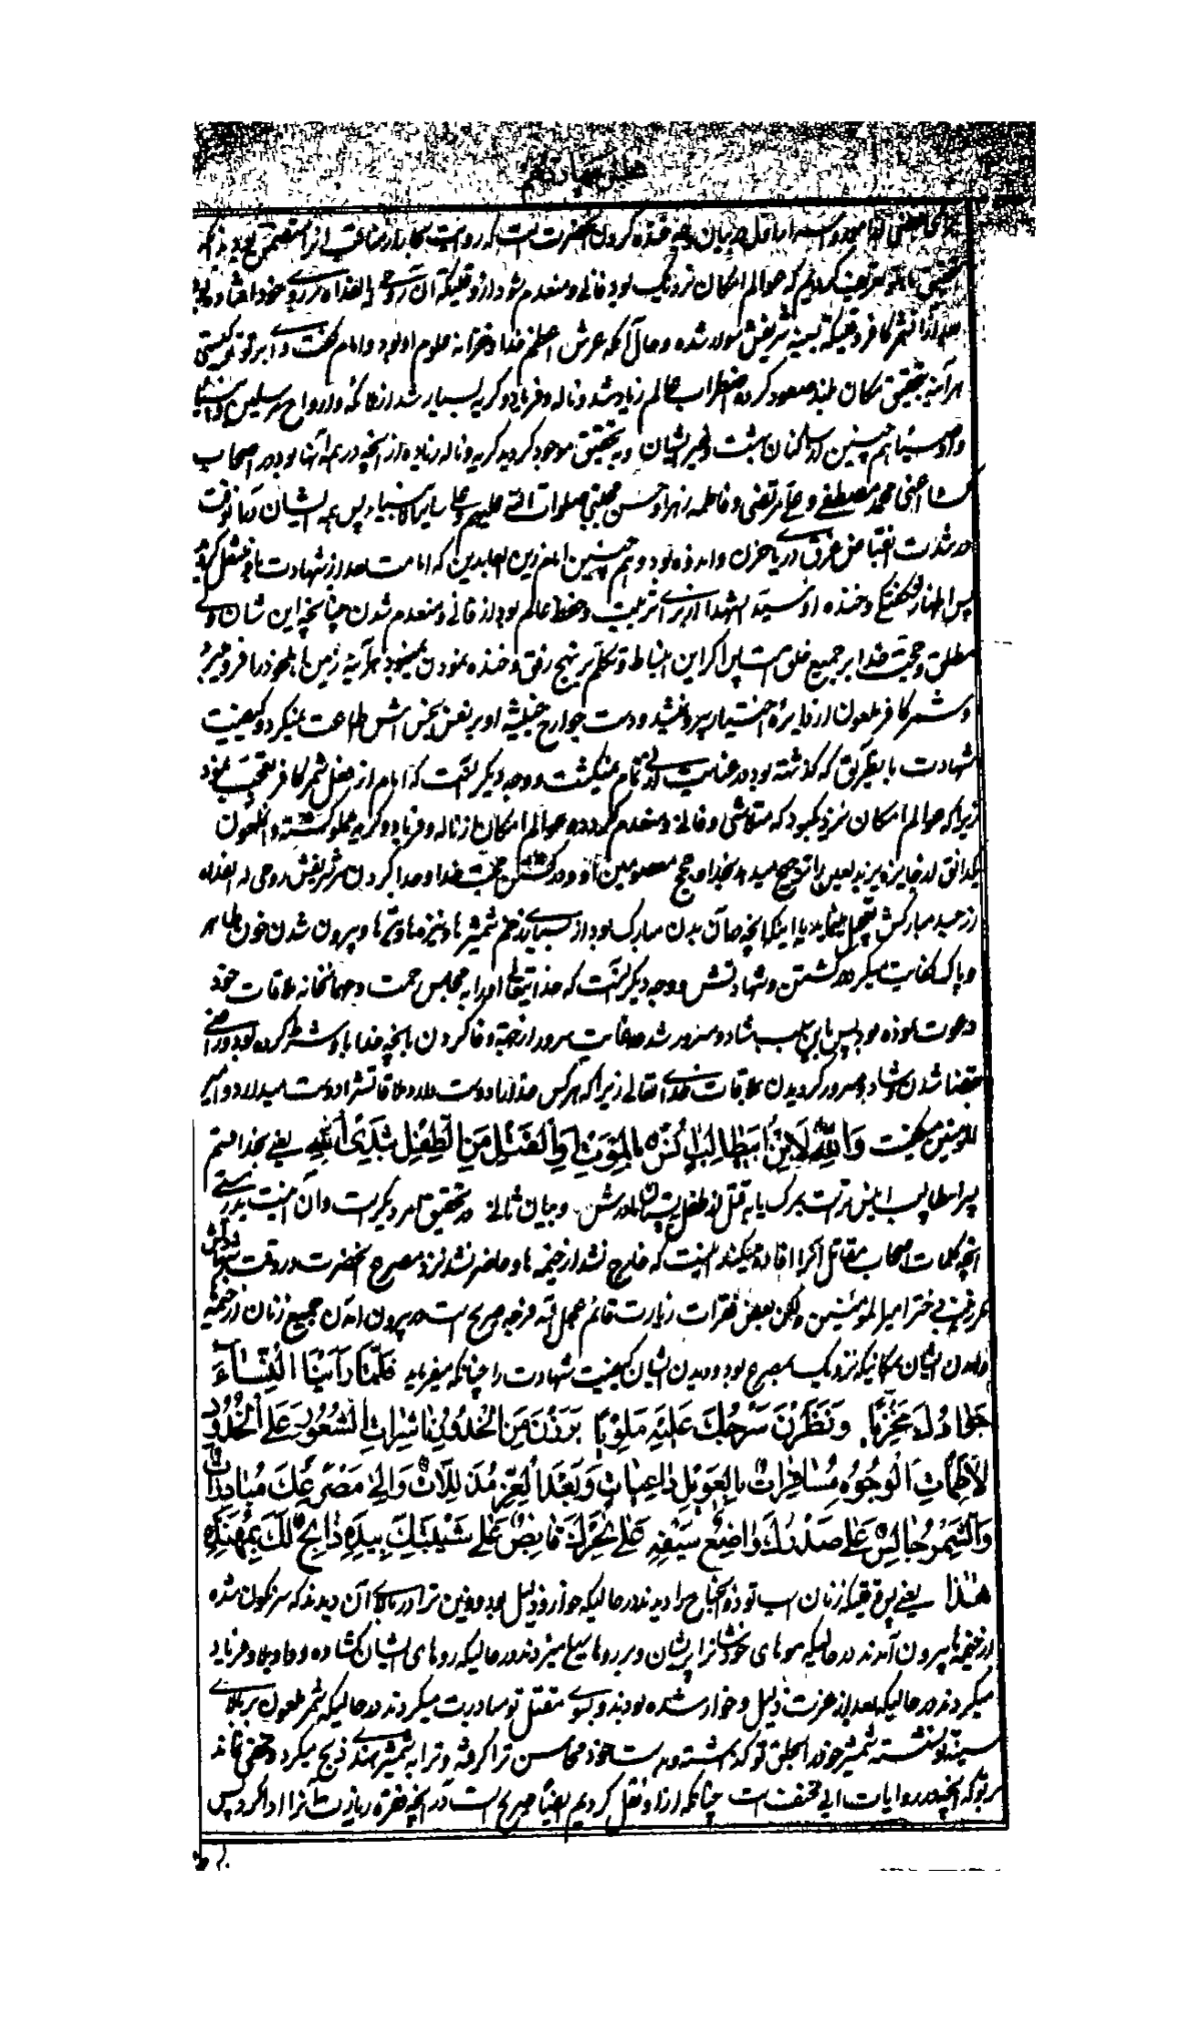 مجلس چهاردهم
بیان وجه خنده کردن آنحضرت است که روایت
که عوالم امکان نزدیک بود فانی و منعدم شود از وقتیکه آن روحی له الفداه بر روی خود افتاده بود
بعد از آن شمر کافر وقتیکه بسینه شریفش سوار شده و حال آنکه عرش اعظم خدا و خزانه علوم او بود و امام گفت وای بر تو تو کیستی
هر آینه بتحقیق مکان بلند صعود کرده اضطراب عالم زیاد شد و ناله و فریاد و گریه بسیار شد از ملائکه و ارواح مرسلین و انبیا
و اوصیا هم چنین از ساکنان بهشت و غیر ایشان و بتحقیق موجود گردید گریه و ناله زیاده از آنچه در همه آنها بود در اصحاب
کسا اعنی محمد مصطفی و علی مرتضی و فاطمه زهرا و حسن مجتبی صلوات الله علیهم و علی سایر الانبیا پس همه ایشان در آنوقت
در شدت انقباض غرق دریای حزن و اندوه بود و هم چنین امام زین العابدین که امامت بعد از شهادت باو منتقل گردید
پس اظهار شکفتگی و خنده او سید الشهدا از برای تربیت و حفظ عالم بود از فانی و منعدم شدن چنانچه این شان ولی
مطلق و حجت خدا بر جمیع خلق است پس اگر این انبساط و تکلم بر نهج رفق و خنده نمودن نمیبود هر آینه زمین با اهلخود را فرو میبرد
و شمر کافر ملعون از دایره اختیار بیرون میشد و دست جوارح خبیثه او بر نفس نجس اش طاعت نمیکرد و کیفیت
شهادت بآنطریق که گذشته بود در عنایت ازلی تمام نمیگشت و وجه دیگر آنست که امام از فعل شمر کافر تعجب نمود
زیرا که عوالم امکان نزدیک بود که متلاشی و فانی و منعدم گردد و عوالم امکان از ناله و فریاد و گریه مملو گشته و آنملعون
یکدانق از جایزه یزید لعین را ترجیح میدهد بخدا و حجج معصومین او و در کشتن حجت خدا و جدا کردن سر شریفش روحی له الفداه
از جسد مبارکش تعجیل مینماید با اینکه آنچه در آن بدن مبارک بود از بسیاری زخم شمشیرها و نیزه ها و تیرها و بیرون شدن خون طاهر
و پاک کفایت میکرد در کشتن و شهادتش و وجه دیگر آنست که خدایتعالی او را به مجلس رحمت و مهمانخانه ملاقات خود
دعوت نموده بود پس باین سبب شاد و مسرور شد
بقضا شدن و شاد و مسرور گردیدن بملاقات خدای تعالی زیرا که هر کس خدا را دوست دارد ملاقاتش را دوست میدارد و امیر
المومنین میگفت وَاللّٰهِ لَابْنُ اَبِیطَالِبٍ اٰنَسُ بِالْمَوْتِ اَوِ الْقَتْلِ مِنَ الطِّفْلِ بِثَدْیِ اُمِّهِ یعنی بخدا قسم
پسر ابیطالب انیس تر است بمرگ یا به قتل از طفل به پستان مادرش و بیان ثالث در تحقیق امر دیگر است و آن اینست بدرستی
آنچه کلمات اصحاب مقاتل اکثرا افاده میکند اینست که خارج نشد از خیمه ها و حاضر نشد نزد مصرع آنحضرت در وقت شهادتش
غیر زینب دختر امیر المومنین ولکن بعض فقرات زیارت قائم عجل الله فرجه صریح است در بیرون آمدن جمیع زنان از خیمه
و آمدن ایشان بمکانیکه نزدیک بمصرع بود و دیدن ایشان کیفیت شهادت را چنانکه میفرماید فَلَمَّا رَاَیْنَ النِّسَاءَ
جَوَادَكَ مَخْزِیًّا وَنَظَرْنَ سَرْجَكَ عَلَیْهِ مَلْوِیًّا بَرَزْنَ مِنَ الْخُدُورِ نَاشِرَاتِ الشُّعُورِ عَلَی الْخُدُودِ
لَاطِمَاتِ الْوُجُوهِ سَافِرَاتٍ بِالْعَوِیلِ دَاعِیَاتٍ وَبَعْدَ الْعِزِّ مُذَلَّلَاتٍ وَاِلٰی مَصْرَعِكَ مُبَادِرَاتٍ
وَالشِّمْرُ جَالِسٌ عَلٰی صَدْرِكَ وَاضِعٌ سَیْفَهُ عَلٰی نَحْرِكَ قَابِضٌ عَلٰی شَیْبَتِكَ بِیَدِهِ ذَابِحٌ لَكَ بِمُهَنَّدِهِ
هٰذَا یعنی پس وقتیکه زنان اسب تو ذو الجناح را دیدند در حالیکه خوار و ذلیل بود و زین ترا در بالای آن دیدند که سرنگون شده
از خیمه ها بیرون آمدند در حالیکه موهای خودشانرا پریشان و بر روها سیلی میزدند در حالیکه روهای ایشان گشاده و واویلا و فریاد
میکردند در حالیکه بعد از عزت ذلیل و خوار شده بودند و بسوی مقتل تو مبادرت میکردند در حالیکه شمر ملعون بر بالای
سینه تو نشسته شمشیر خود را بحلق تو گذاشته و بدست خود محاسن ترا گرفته و ترا به شمشیر هندی ذبح میکرد و مخفی نماند
بر تو که آنچه در روایات ابی مخنف است چنانکه از او نقل کردیم ایضا صریح است در آنچه فقره زیارت آنرا ادا کرد پس